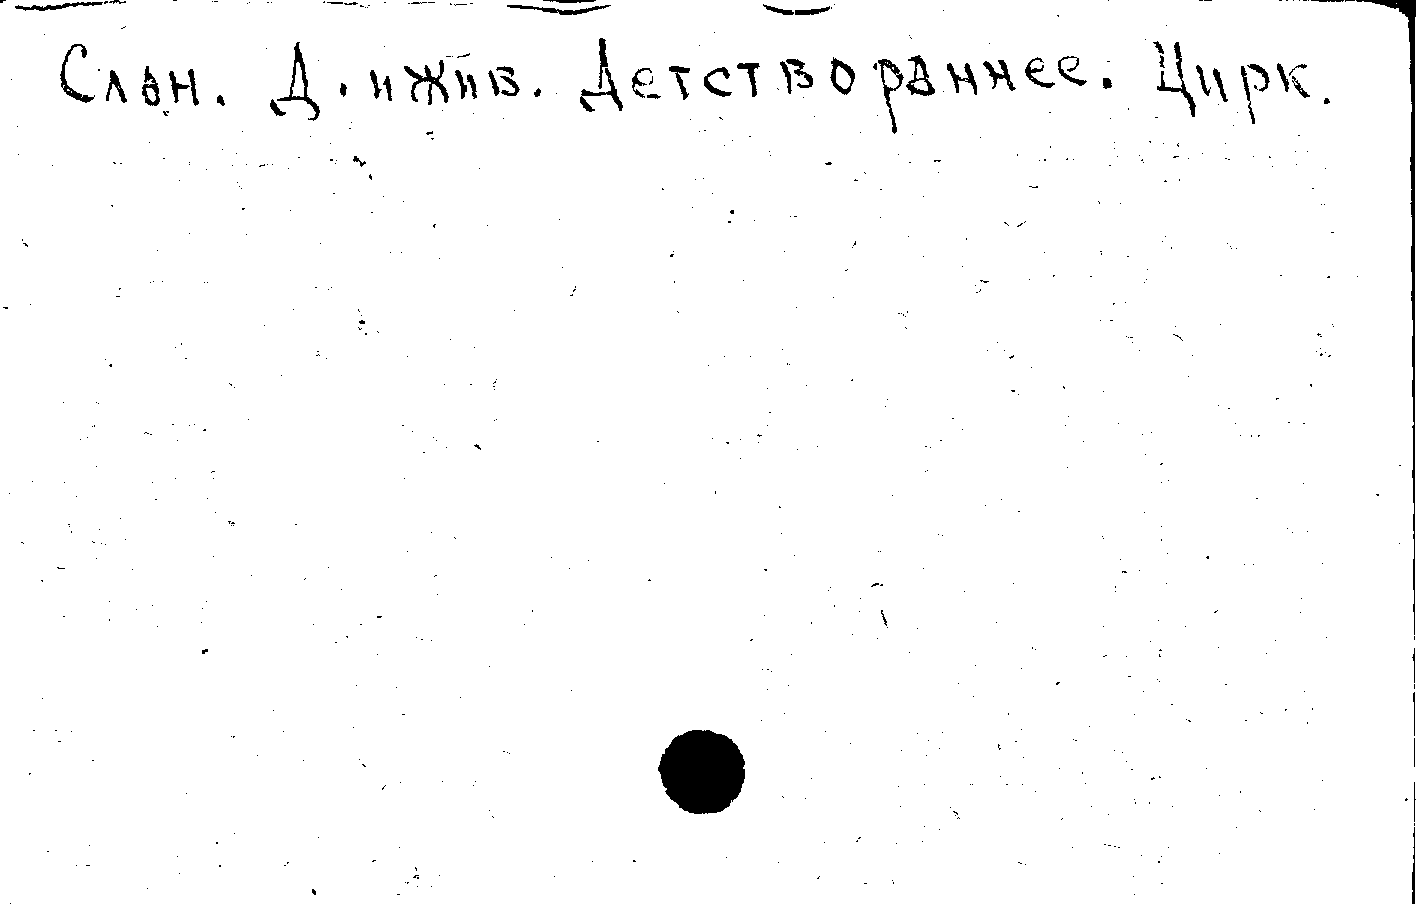 Слон. Д. и Жив. Детство раннее. Цирк.